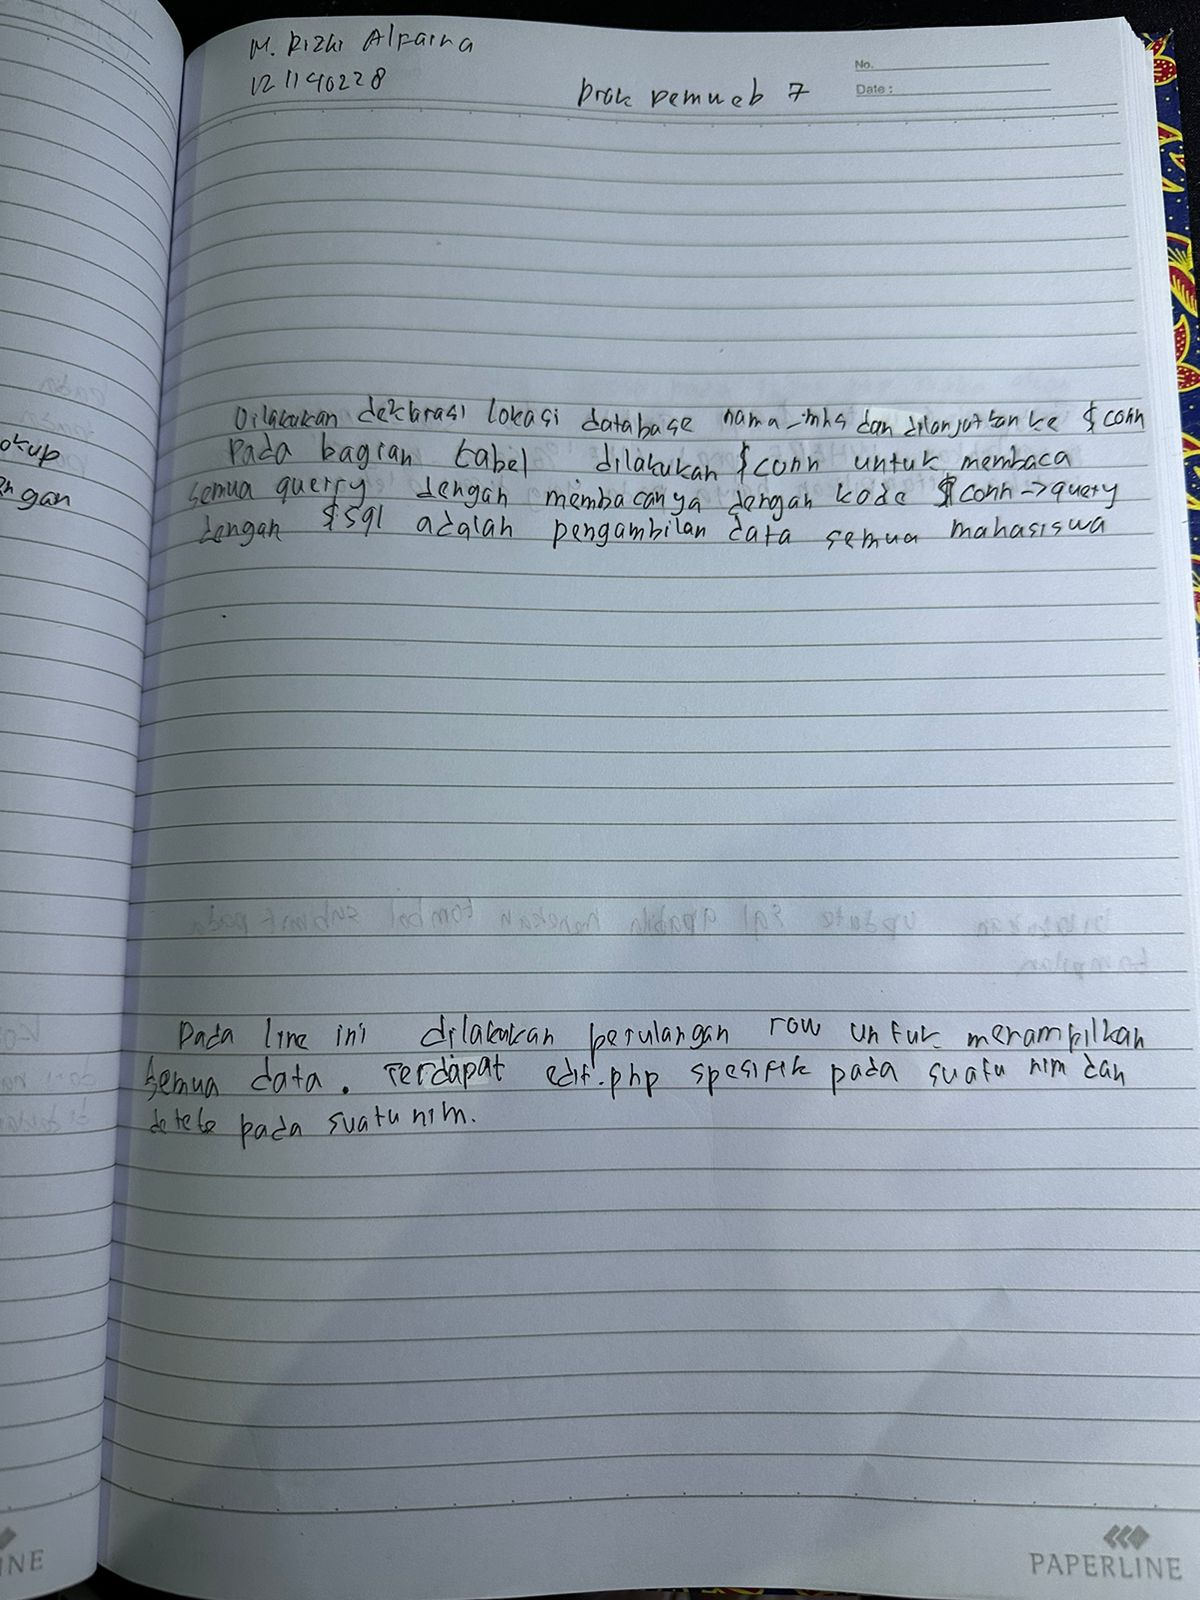 M. Rizki Alfaina
121140228
No.
Date :
Prak Pemweb 7
Dilakukan deklarasi lokasi database nama_mhs dan dilanjutkan ke $conn
Pada bagian tabel dilakukan $conn untuk membaca
semua querry dengan membacanya dengan kode $conn->query
dengan $sql adalah pengambilan data semua mahasiswa
Pada line ini dilakukan perulangan row untuk menampilkan
semua data. Terdapat edit.php spesifik pada suatu nim dan
delete pada suatu nim.
ngan
PAPERLINE